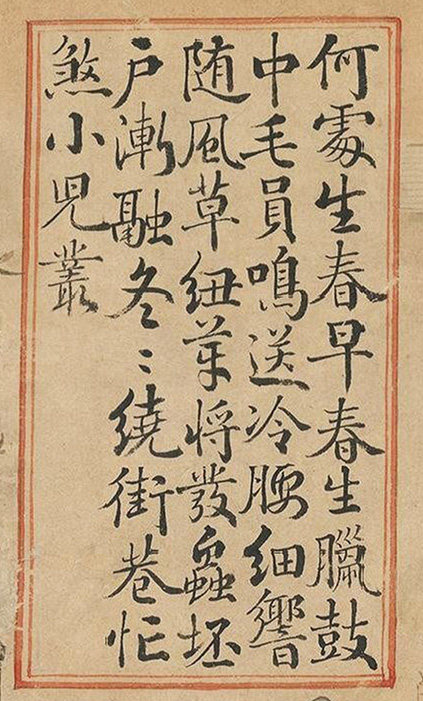 何處生春早春生臘鼓
中毛員鳴送冷腰細響
随風草紐芽将發蟲坯
户漸融冬〻繞街巷忙
煞小兒叢